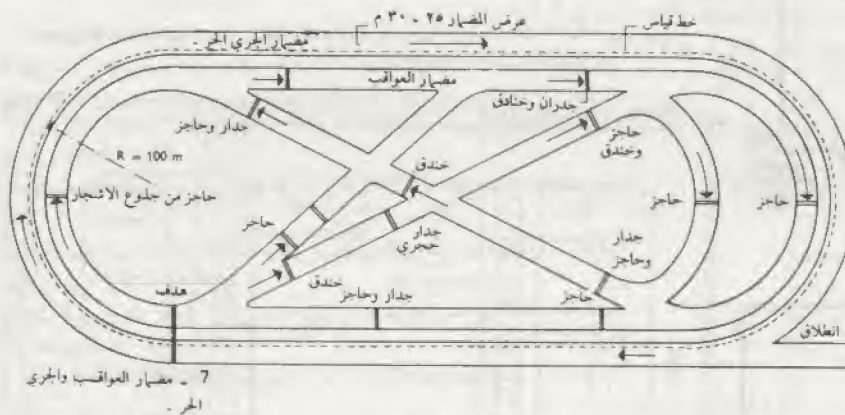 خط قياس
عرض المضمار ٢٥ - ٣٠ م
مضمار الجري الحر -
مضمار العواقب
جدران وخنادق
جدار وحاجز
حاجز
وخندق
R = 100 m
خندق
حاجز من جذوع الاشجار
حاجز
حاجز
حاجز
جدار
حجري
جدار
وحاجز
هدف
خندق
جدار وحاجز
حاجز
انطلاق
7 - مضمار العواقب والجري
الحر -